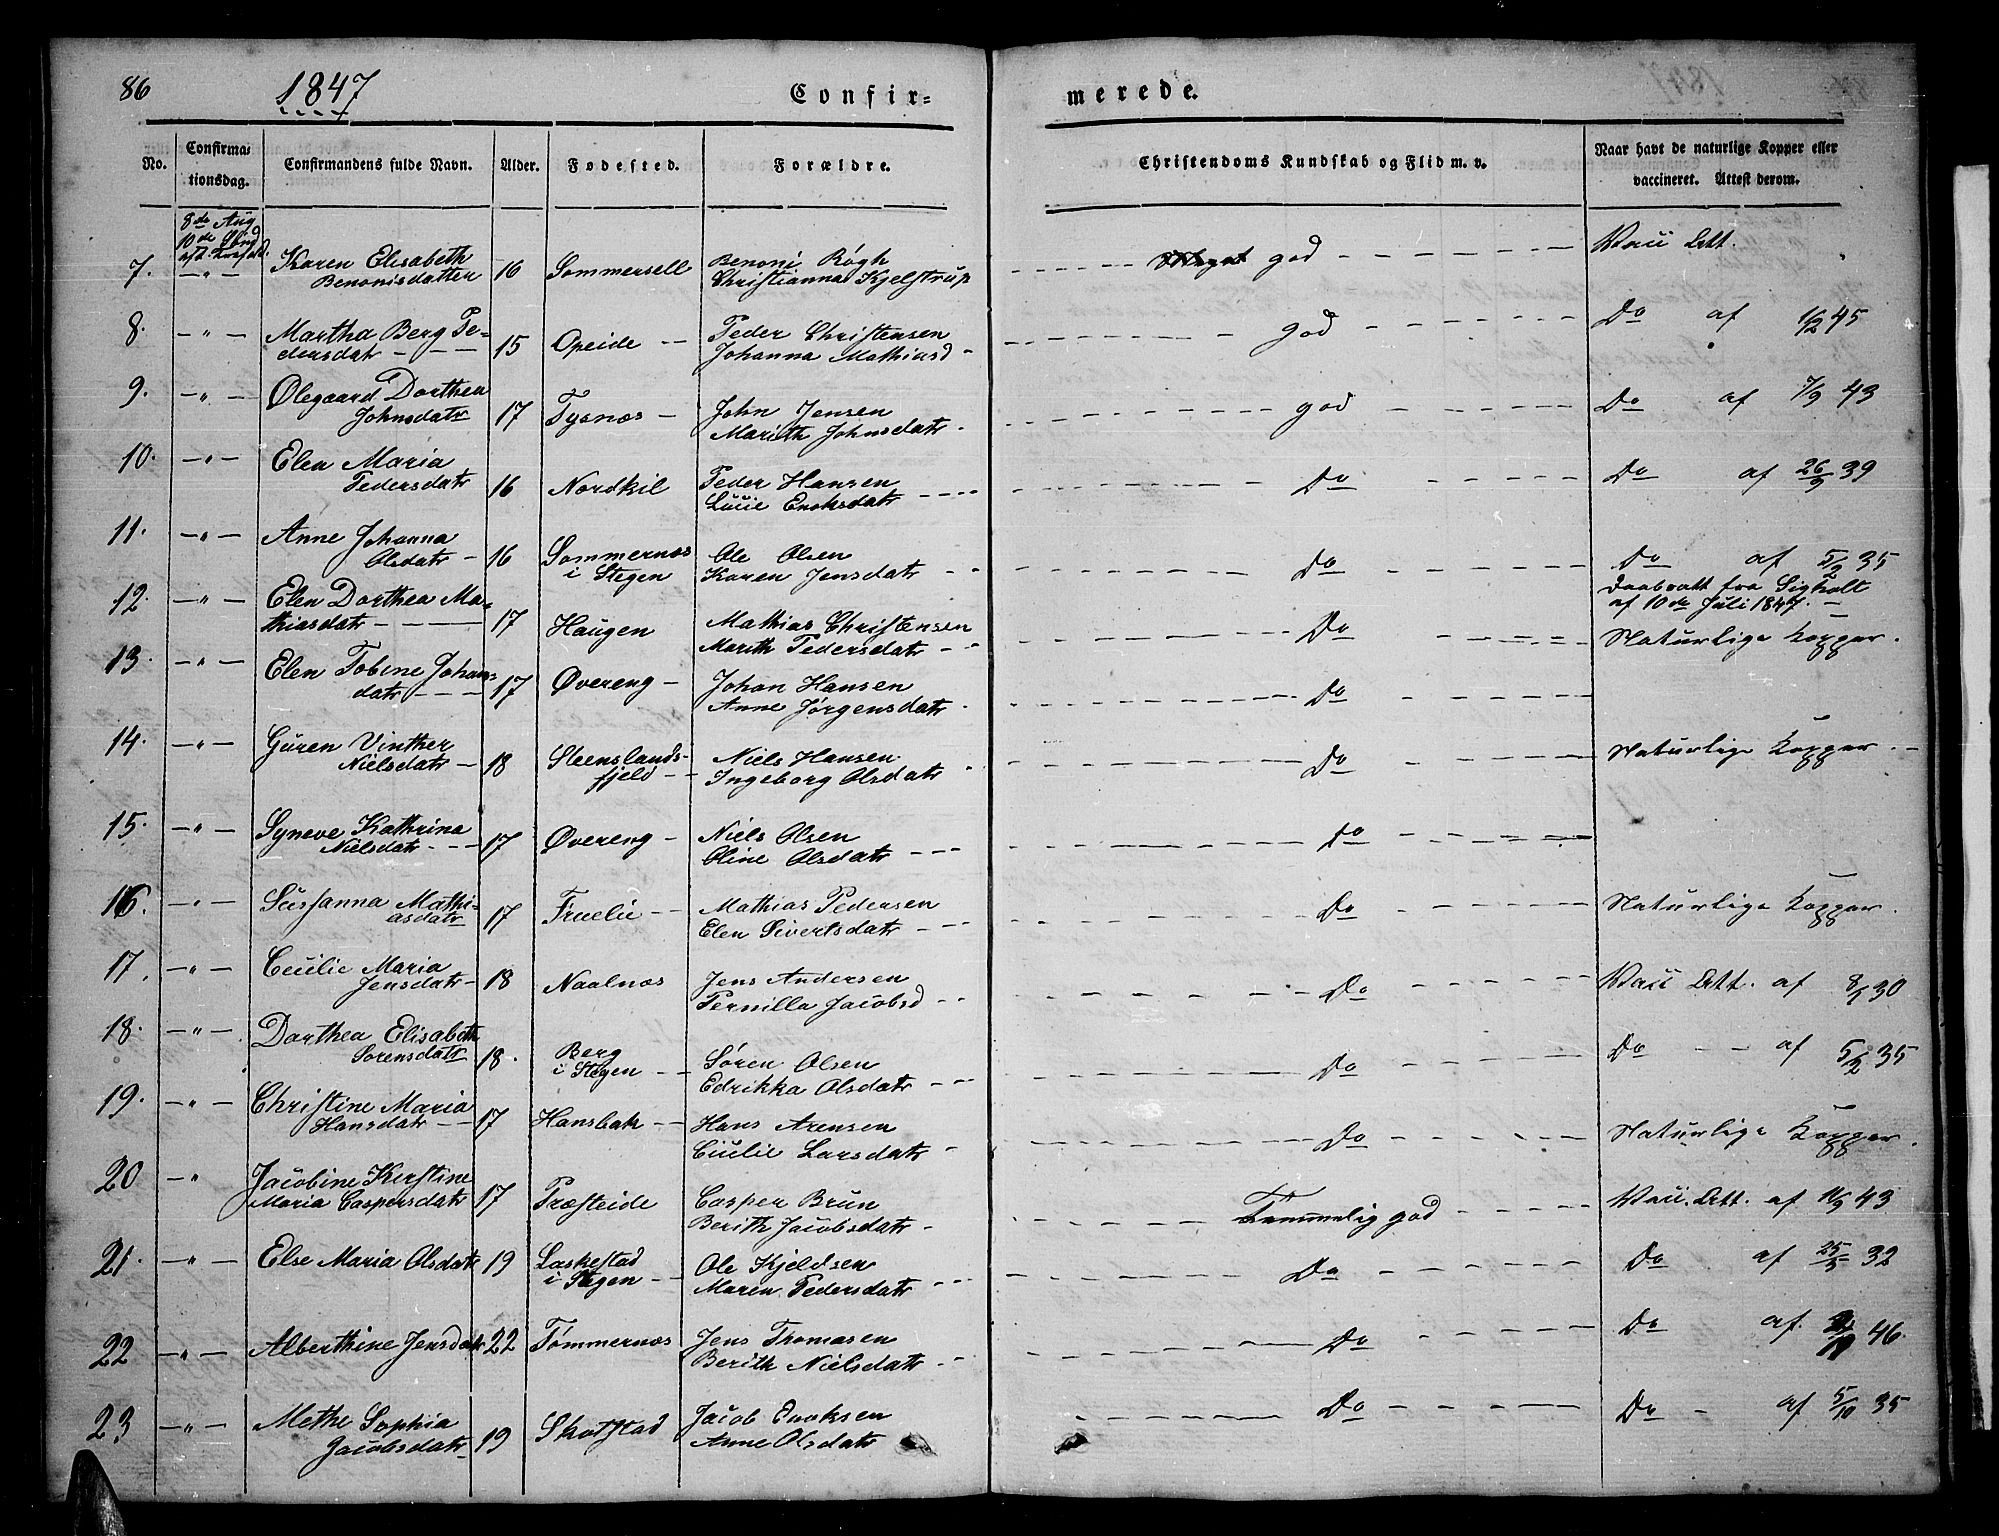 86
1847
Confir=
merede.
No.
Confirma=
tionsdag.
Confirmandens fulde Navn.
Alder.
Fødested.
Forældre.
Christendoms Kundskab og Flid m. v.
Naar havt de naturlige Kopper eller
vaccineret. Attest derom.
8de Aug
10de Sönd
7. — " — Karen Elisabeth
Benonisdatter 16 Sommersell Benoni Røgh
Christianna Kjelstrup god Vacc Att.
8. — " — Martha Berg Pe-
dersdatr 15 Opeide Peder Christensen
Johanna Mathiasd god Do af 45
9. — " — Olegaard Dorthea
Johnsdatr 17 Tysnæs John Jensen
Marith Johnsdatr god Do af 7/9 43
10. — " — Elen Maria
Pedersdatr 16 Nordkil Peder Hansen
Lucie Enoksdatr Do Do af 26/9 39
11. — " — Anne Johanna
Olsdatr 16 Sommernæs
i Stegen Ole Olsen
Karen Jensdatr Do Do af 5/2 35
12. — " — Elen Dorthea Ma-
thiasdatr 17 Haugen Mathias Christensen
Marith Pedersdatr Do Daabsatt fra
af 10de Juli 1847.
Naturlige Kopper.
13. — " — Elen Tobine Johans
datr 17 Øvereng Johan Hansen
Anne Jørgensdatr Do
14. — " — Guren Vinther
Nielsdatr 18 Steenslands-
fjeld Niels Hansen
Ingeborg Olsdatr Do Naturlige Kopper.
15. — " — Syneve Kathrina
Nielsdatr 17 Øvereng Niels Olsen
Oline Olsdatr Do
16. — " — Susanna Mathi-
asdatr 17 Fruelie Mathias Pedersen
Elen Sivertsdatr Do Naturlige Kopper.
17. — " — Cecilie Maria
Jensdatr 18 Naalnæs Jens Andersen
Pernilla Jacobsd Do Vacc Att. af 30
18. — " — Dorthea Elisabeth
Sorensdatr 18. Berg
i Stegen Søren Olsen
Edrikka Olsdatr Do Do af 5/2 35
19. — " — Christine Maria
Hansdatr 17 Hansbak Hans Arensen
Cecilie Larsdatr Do Naturlige Kopper.
20 — " Jacobine Kirstine
Maria Caspersdatr 17 Præsteide Casper Brun
Berith Jacobsdatr Temmelig god Vacc. Att. af 43
21. — " — Else Maria Olsdatr 19 Laskestad
i Stegen Ole Kjeldsen
Maren Pedersdatr Do Do af 32
22 — " — Alberthine Jensdatr 22 Tømmernæs Jens Thomasen
Berith Nielsdatr Do Do af 46.
23 — " — Methe Sophia
Jacobsdatr 19 Skotstad Jacob Enoksen
Anne Olsdatr Do Do af 5/10 35